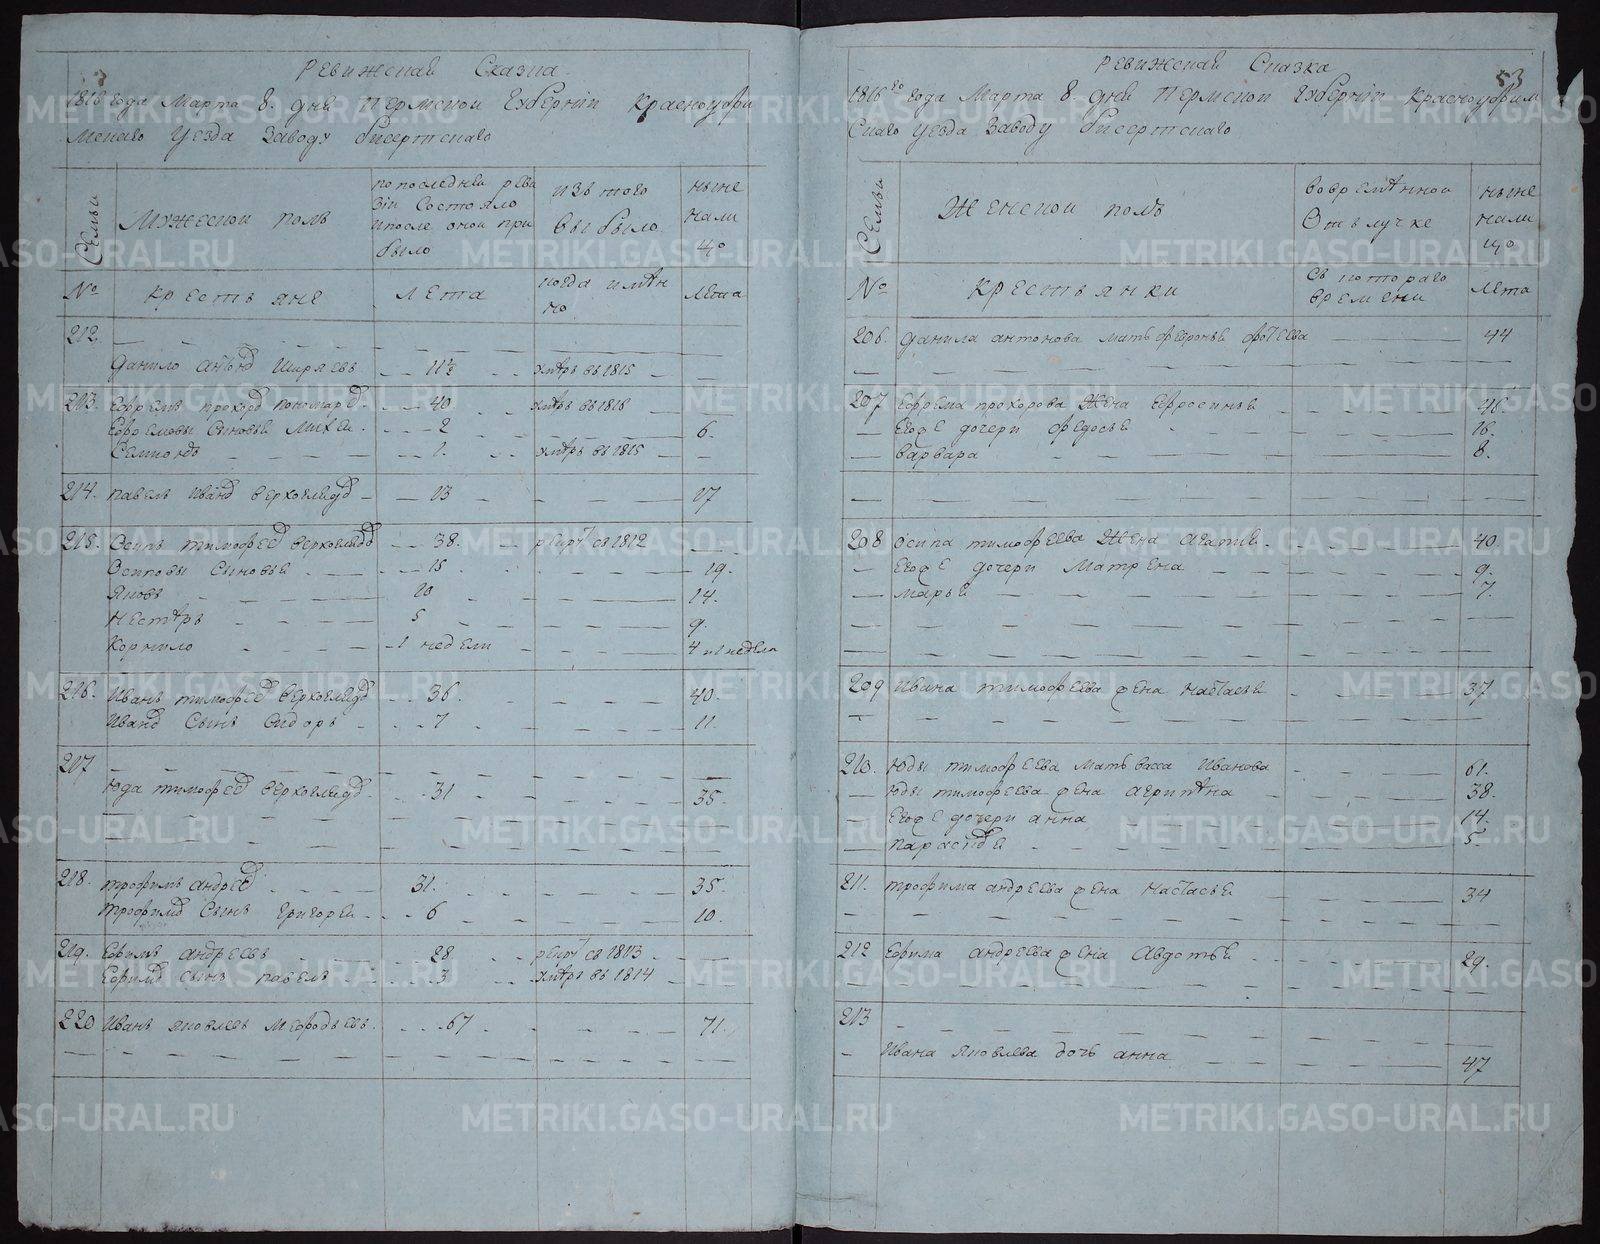 Ревижская Сказка
1816 года Марта 8. дня Пермской Губернїи Красноуфи
мскаго уезда заводу бисертскаго
Семьи
Мужеской полъ
по последней реви
зїи состояло
и после оной при
было
изъ того
выбыло
ныне
нали
цо
№
крестьяне
лета
когда имян
но
лета
212.
данило антонов ширяевъ 11½ умѣръ въ 1815
213. Ефремъ прохоров пономарев 40 умѣръ въ 1816
Ефремовы сыновья Михей 2 6.
Семионъ 1. умѣръ въ 1815
214. павелъ Иванов верхоглядов 13 17
215. Осипъ тимофеев верхоглядов 38. рекрут съ 1812
Осиповы сыновья 15 19.
Яковъ 10 14.
Нестѣръ 5 9.
Корнило 1 недели 4 и 1 неделя
216. Иванъ тимофеев верхоглядов 36. 40.
Иванов сынъ Сидоръ 7 11.
217
Юда тимофеев верхоглядов 31 35.
218. трофимъ андреев 31. 35.
трофимов сынъ григорей 6 10.
219. Ефимъ андреевъ 28 рекрут съ 1813
Ефимов сынъ павелъ 3 умѣръ въ 1814
220 Иванъ яковлевъ мефодьевъ 67 71.
53
Ревижская Сказка
1816 го года Марта 8. дня Пермской Губернїи Красноуфим
скаго уезда заводу бисертскаго
Семьи
Женской полъ
во времѣнной
отълучке
ныне
нали
цо
№
крестьянки
съ котораго
времени
лета
206. данила антонова мать февронья фотеева 44
207 Ефрема прохорова жена Ефросинья 46.
Егоже дочери федосья 16.
варвара 8.
208 осипа тимофеева жена агапия 40.
Егоже дочери Матрена 9.
марья 7.
209 Ивана тимофеева жена настасья 37
210. Юды тимофеева мать васса Иванова 61.
Юды тимофеева жена агрипѣна 38.
Егоже дочери анна 14.
парасковья 5.
211. трофима андреева жена настасья 34
212 Ефима андреева жена Авдотья 29.
213
Ивана яковлева дочь анна 47
METRIKI.GASO-URAL.RU